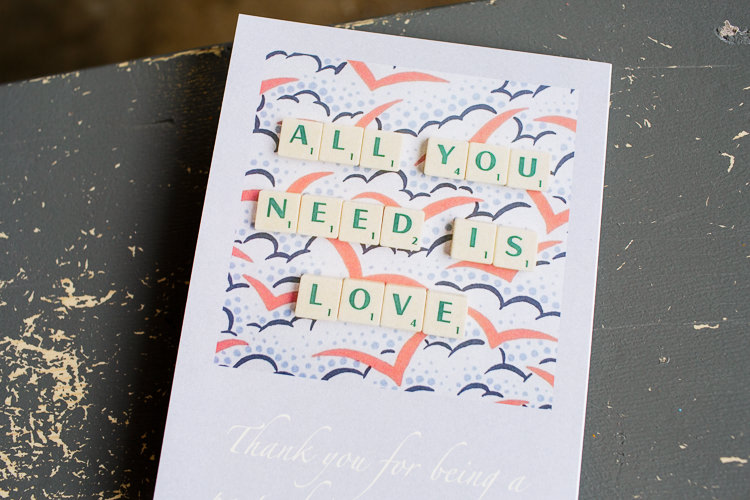 ALL YOU
NEED IS
LOVE
Thank you for being a